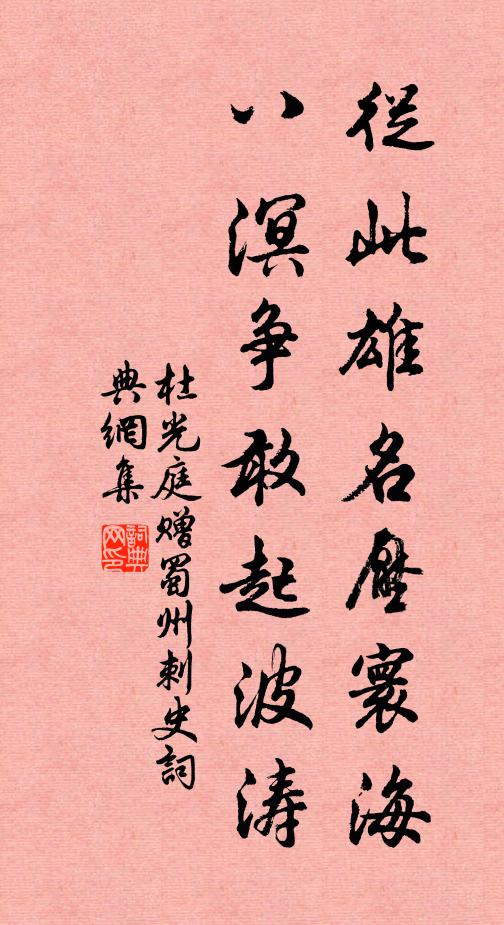 從此雄名壓寰海
八溟争敢起波濤
杜光庭赠蜀州刺史詞
典網集
詞典
网印